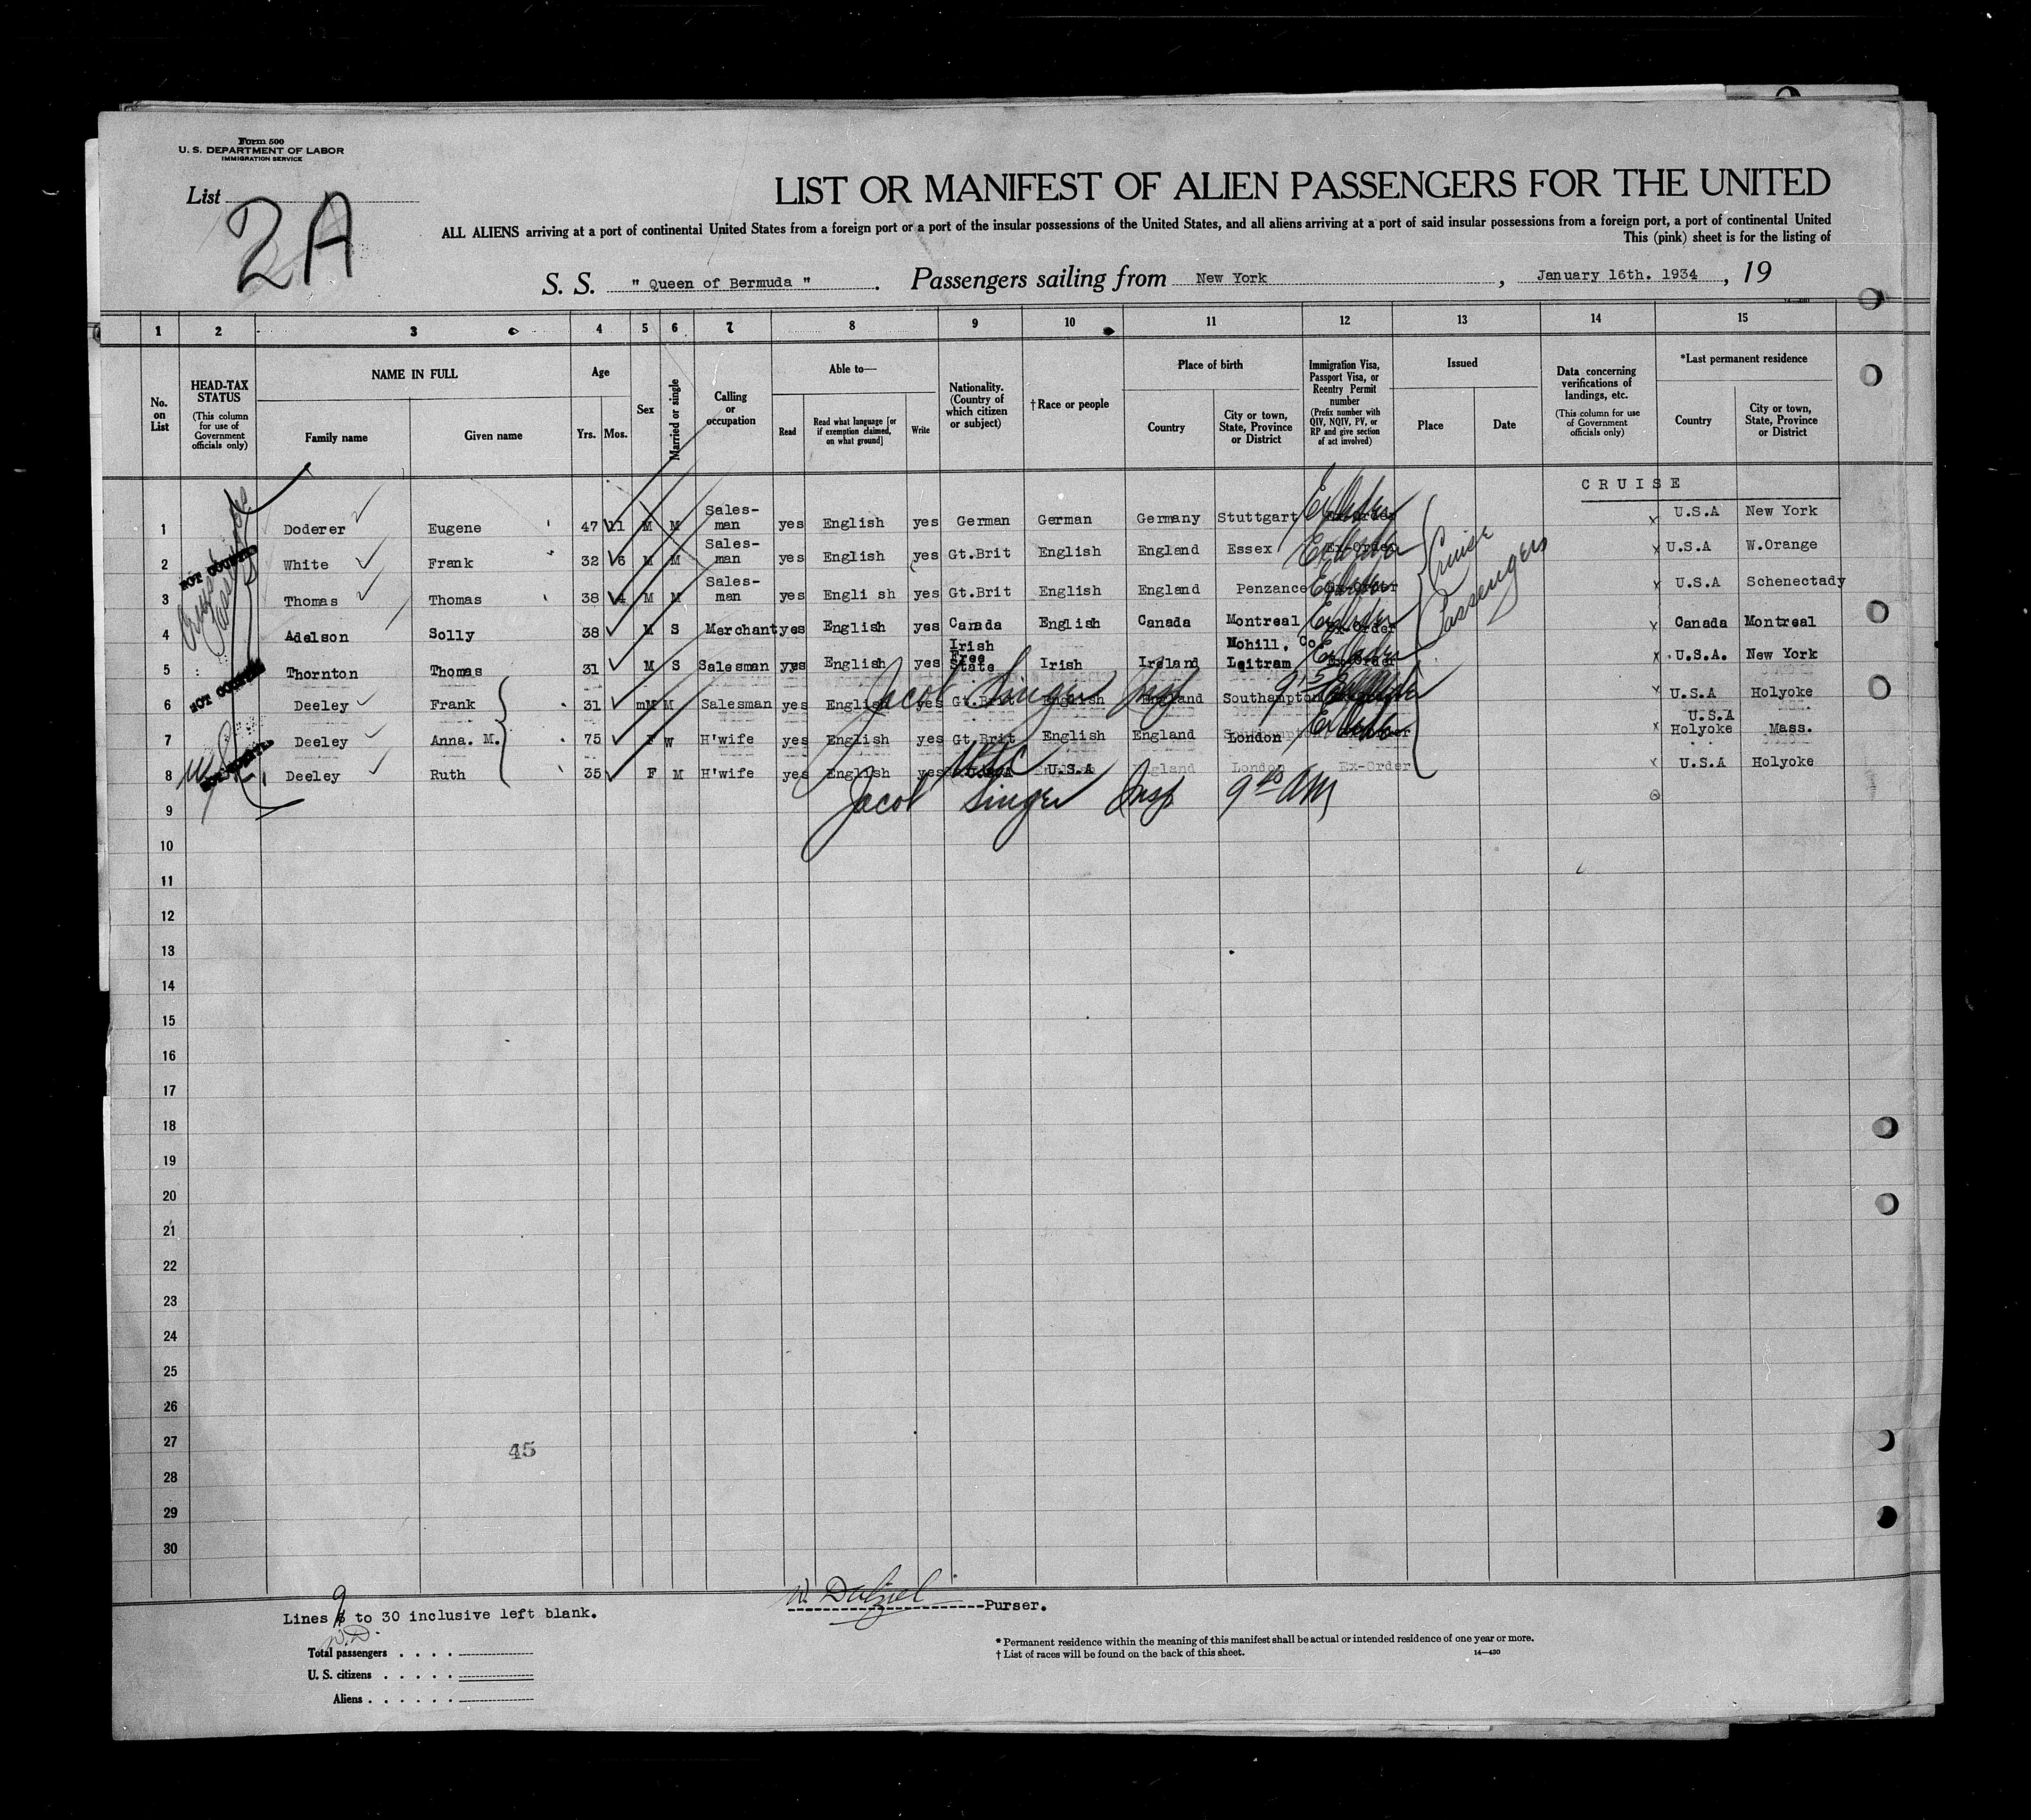 Form 500
U. S. DEPARTMENT OF LABOR
IMMIGRATION SERVICE
List 2A
LIST OR MANIFEST OF ALIEN PASSENGERS FOR THE UNITED
ALL ALIENS arriving at a port of continental United States from a foreign port or a port of the insular possessions of the United States, and all aliens arriving at a port of said insular possessions from a foreign port, a port of continental United
This (pink) sheet is for the listing of
S. S. " Queen of Bermuda ". Passengers sailing from New York, January 16th. 1934, 19
1 2 3 4 5 6 7 8 9 10 11 12 13 14 15
No. on List
HEAD-TAX STATUS (This column for use of Government officials only)
NAME IN FULL
Family name Given name
Age
Yrs. Mos.
Sex
Married or single
Calling or occupation
Able to—
Read Read what language [or if exemption claimed, on what ground] Write
Nationality. (Country of which citizen or subject)
†Race or people
Place of birth
Country City or town, State, Province or District
Immigration Visa, Passport Visa, or Reentry Permit number (Prefix number with QIV, NQIV, PV, or RP and give section of act involved)
Issued
Place Date
Data concerning verifications of landings, etc. (This column for use of Government officials only)
*Last permanent residence
Country City or town, State, Province or District
CRUISE
1 Doderer Eugene 47 11 M M Sales-man yes English yes German German Germany Stuttgart Ex-Order U.S.A New York
2 White Frank 32 6 M M Sales-man yes English yes Gt.Brit English England Essex Ex-Order U.S.A W.Orange
3 Thomas Thomas 38 4 M M Sales-man yes Engli sh yes Gt.Brit English England Penzance Ex-Order U.S.A Schenectady
4 Adelson Solly 38 M S Merchant yes English yes Canada English Canada Montreal Ex-Order Canada Montreal
5 Thornton Thomas 31 M S Salesman yes English yes Irish Free State Irish Ireland Mohill. Co Leitram Ex-Order U.S.A. New York
6 Deeley Frank 31 M M Salesman yes English yes Gt.Brit English England Southampton U.S.A Holyoke
7 Deeley Anna. M. 75 F W H'wife yes English yes Gt.Brit English England London Ex-Order U.S.A Holyoke Mass.
8 Deeley Ruth 35 F M H'wife yes English yes U.S.A U.S.A England London Ex-Order U.S.A Holyoke
NOT COUNTED
NOT COUNTED
NOT COUNTED
Cruise Passengers
Cruise Passengers
USC
Jacob Singer Insp 9 15
Jacob Singer Insp 9 15 AM
9
10
11
12
13
14
15
16
17
18
19
20
21
22
23
24
25
26
27
45
28
29
30
Lines 9 to 30 inclusive left blank.
W.D.
W. Dalziel Purser.
Total passengers
U. S. citizens
Aliens
* Permanent residence within the meaning of this manifest shall be actual or intended residence of one year or more.
† List of races will be found on the back of this sheet.
14—430